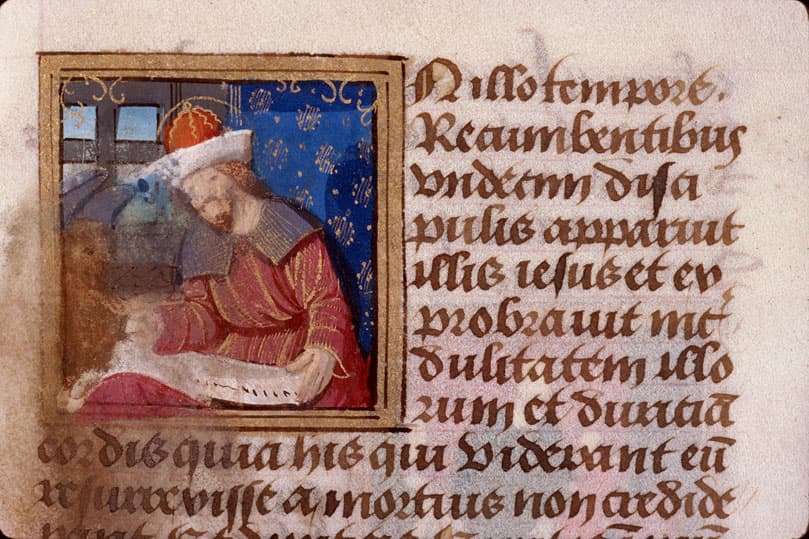 N illo tempore.
Recumbentibus
vndecim disci
pulis apparuit
illis iesus et ex
probrauit inc
dulitatem illo
rum et duriciā
cordis quia his qui viderant eū
resurrexisse a mortuis non credide
rant. Et